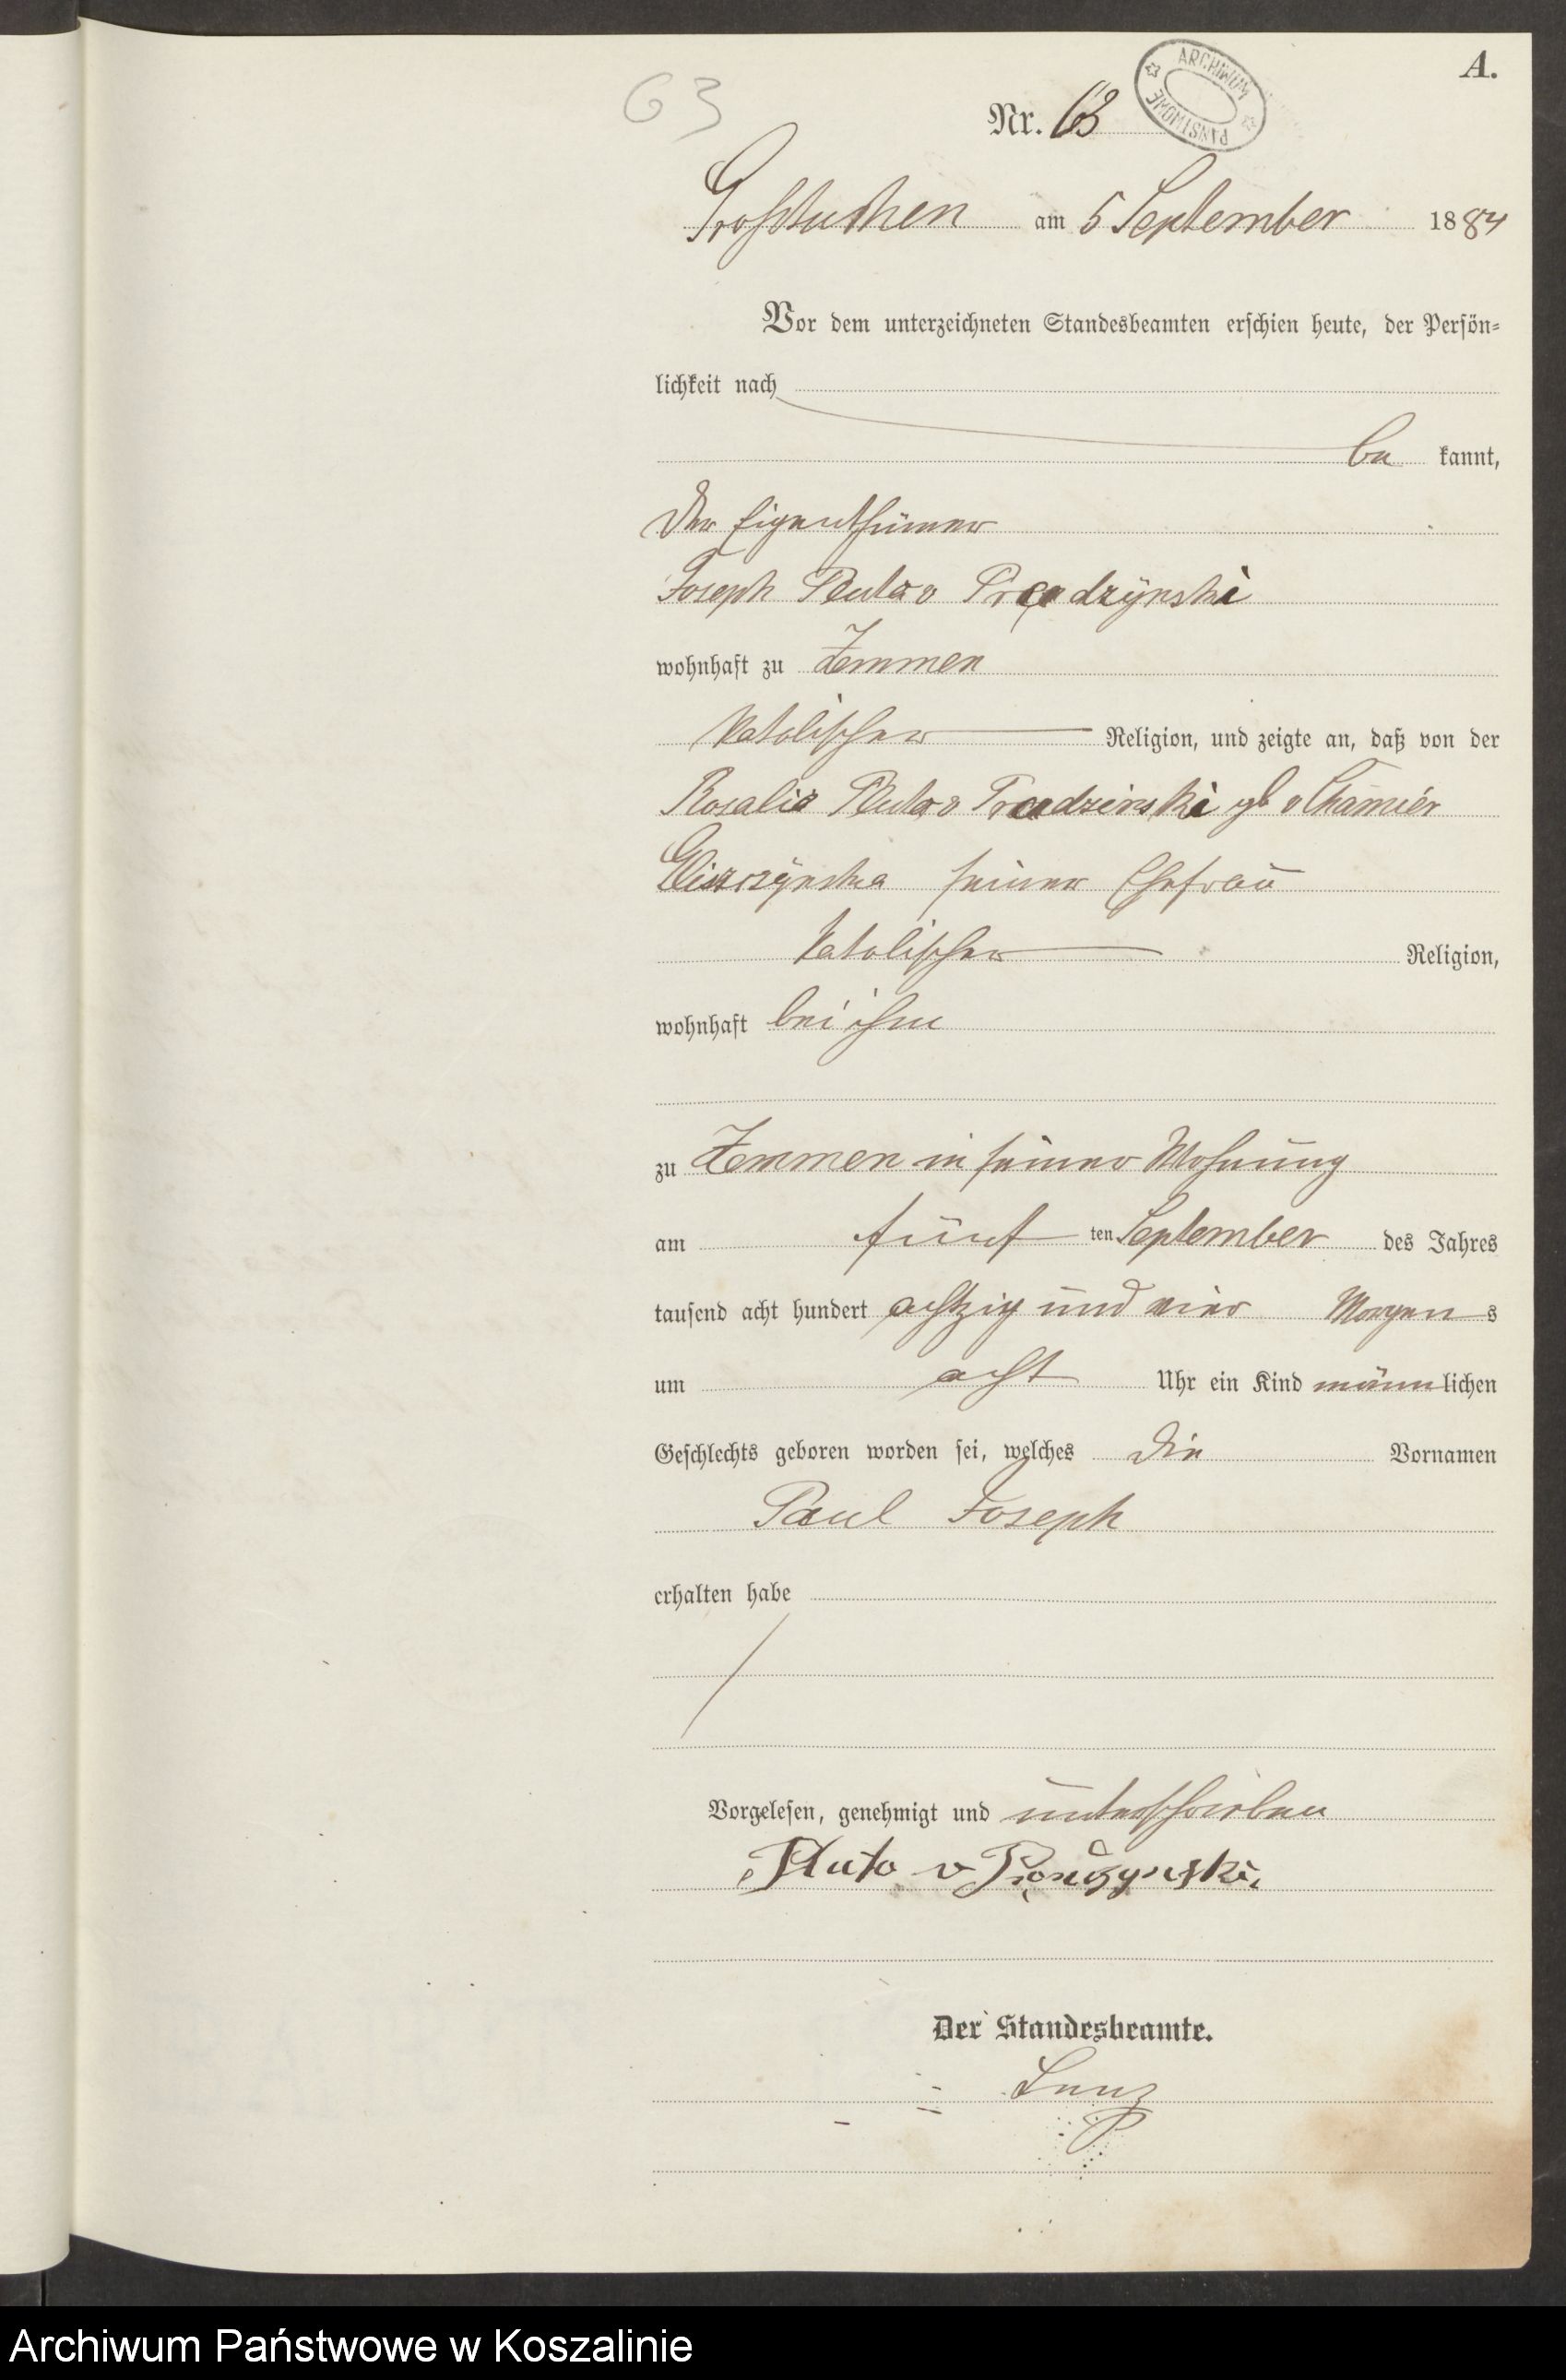 A.
63
Nr. 63
ARCHIWUM PAŃSTWOWE
Großtuchen am 5 September 1884
Vor dem unterzeichneten Standesbeamten erschien heute, der Persön-
lichkeit nach
be kannt,
der Eigenthümer
Joseph Pluto v Prondzÿnski
wohnhaft zu Zemmen
katolischer Religion, und zeigte an, daß von der
Rosalia Pluto v Prondzinski gb v Chamier
Gliszczÿnska seiner Ehefrau
katolischer Religion,
wohnhaft bei ihm
zu Zemmen in seiner Wohnung
am fünf ten September des Jahres
tausend acht hundert achtzig und vier Morgens
um acht Uhr ein Kind männlichen
Geschlechts geboren worden sei, welches die Vornamen
Paul Joseph
erhalten habe
Vorgelesen, genehmigt und unterschrieben
Pluto v Prondzynski
Der Standesbeamte.
Archiwum Państwowe w Koszalinie